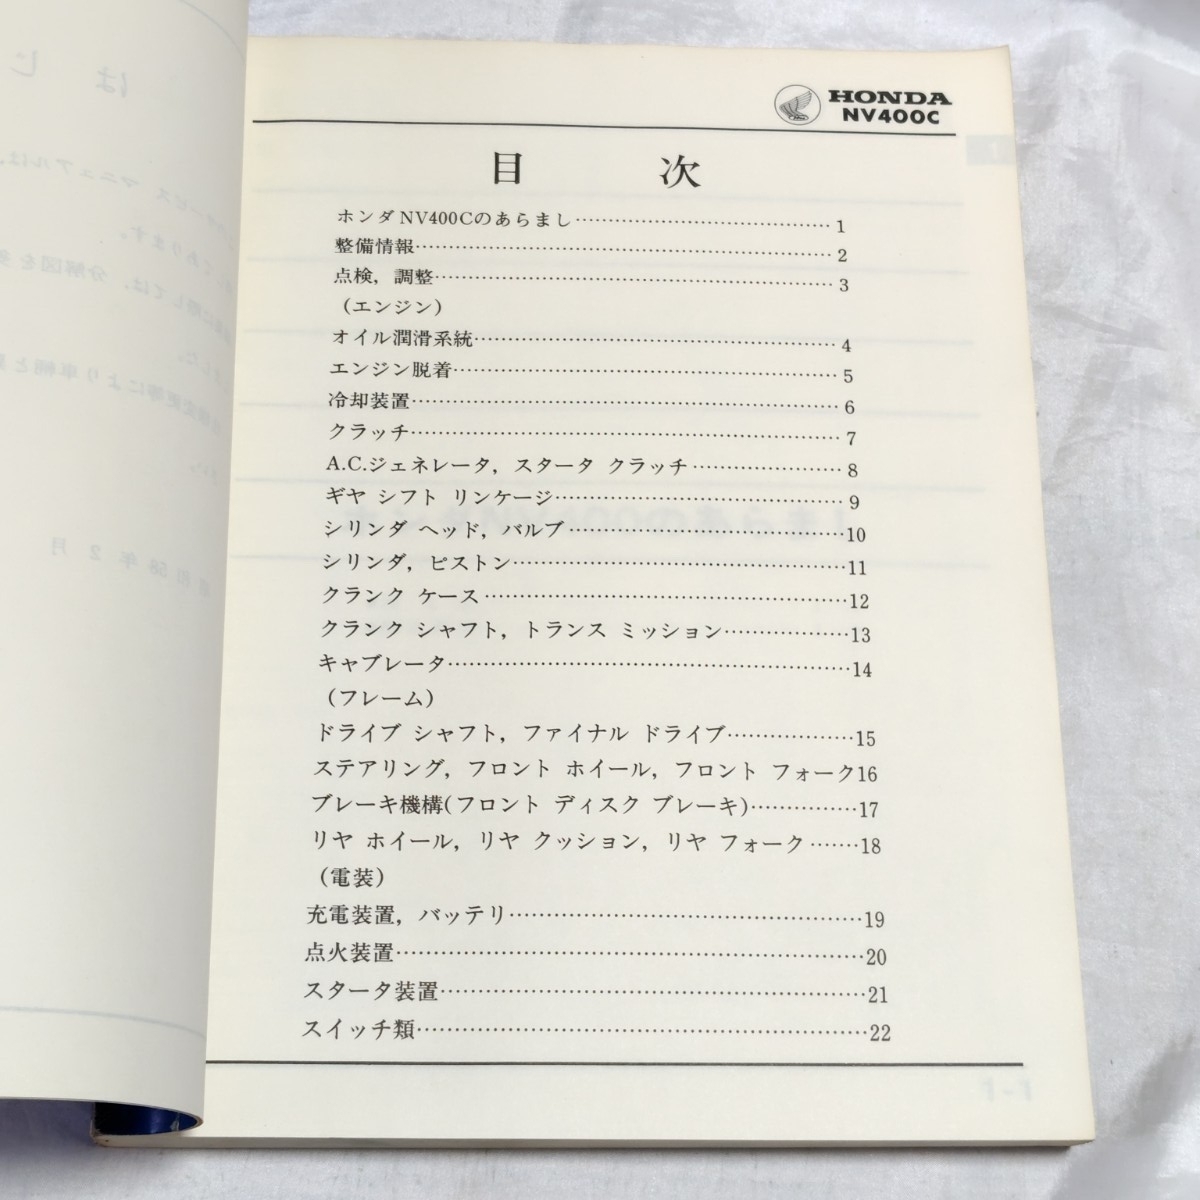 HONDA
NV400C
目 次
ホンダNV400Cのあらまし……………………………1
整備情報……………………………2
点検，調整……………………………3
（エンジン）
オイル潤滑系統……………………………4
エンジン脱着……………………………5
冷却装置……………………………6
クラッチ……………………………7
A.C.ジェネレータ，スタータ クラッチ………………8
ギヤ シフト リンケージ……………………………9
シリンダ ヘッド，バルブ……………………………10
シリンダ，ピストン……………………………11
クランク ケース……………………………12
クランク シャフト，トランス ミッション………………13
キャブレータ……………………………14
（フレーム）
ドライブ シャフト，ファイナル ドライブ………………15
ステアリング，フロント ホイール，フロント フォーク16
ブレーキ機構(フロント ディスク ブレーキ)……………17
リヤ ホイール，リヤ クッション，リヤ フォーク……18
（電装）
充電装置，バッテリ……………………………19
点火装置……………………………20
スタータ装置……………………………21
スイッチ類……………………………22